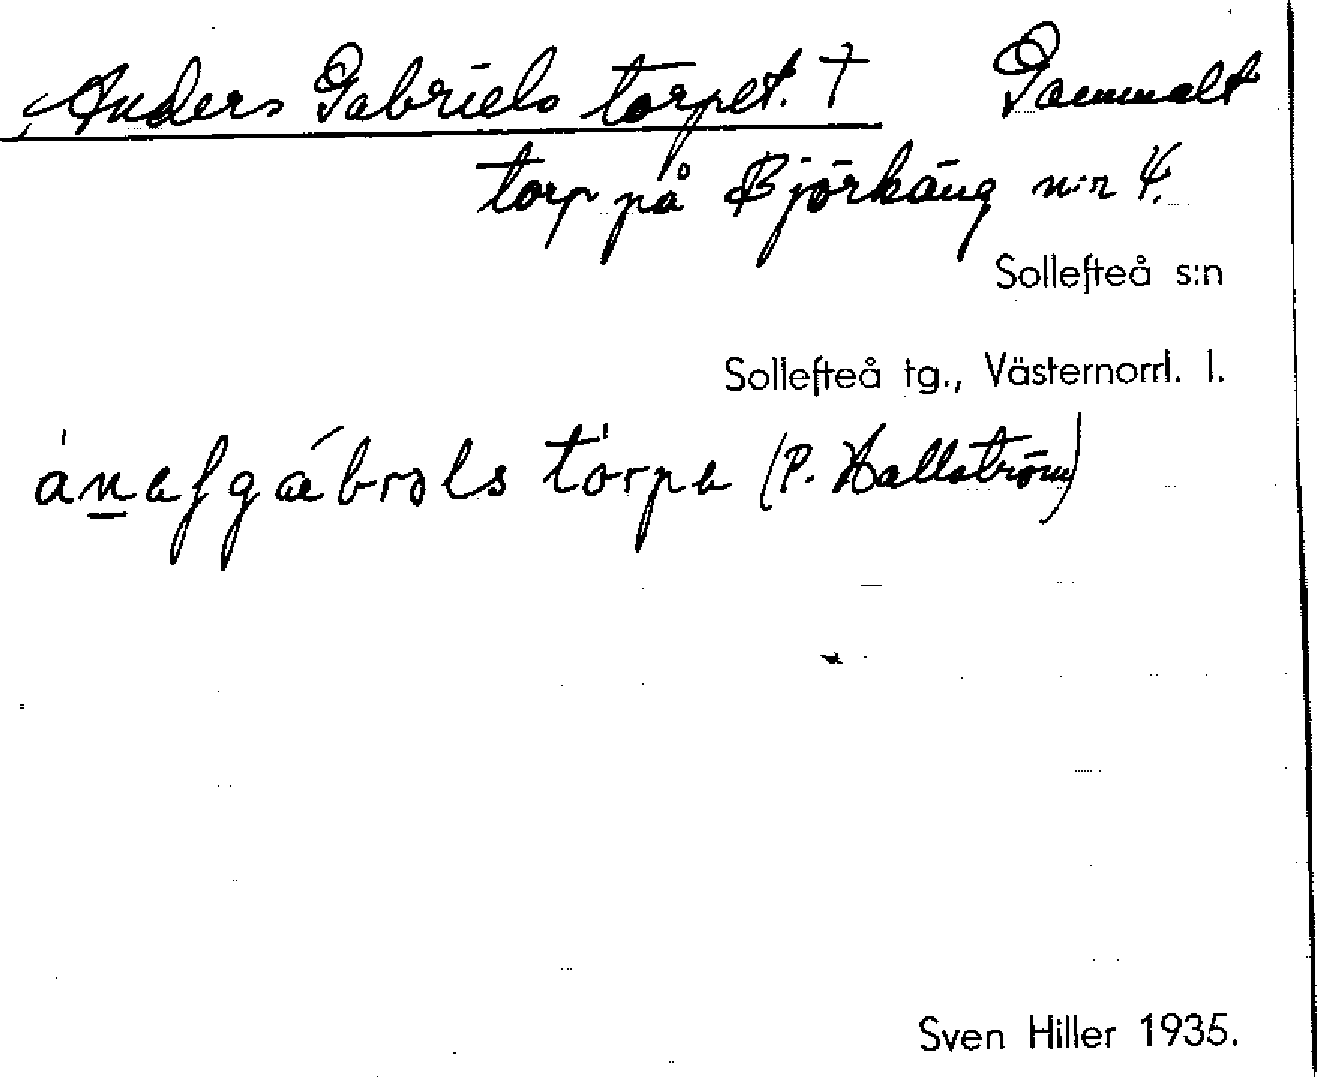 Anders Gabriels torpet. † Gammalt
torp på Björkäng n:r 4.
Sollefteå s:n
Sollefteå tg., Västernorrl. l.
(P. Hallström)
Sven Hiller 1935.